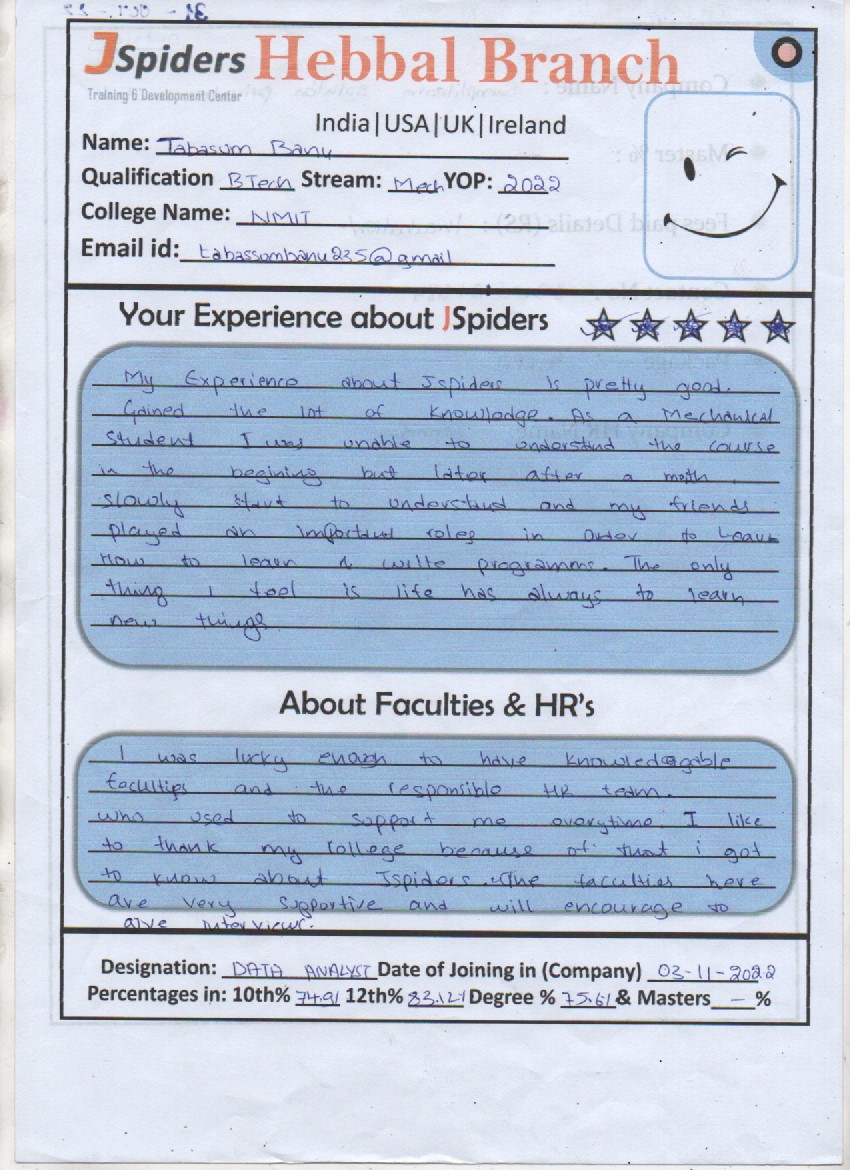 JSpiders Hebbal Branch
Training & Development Center
India|USA|UK|Ireland
Name: Tabasum Banu
Qualification BTech Stream: Mech YOP: 2022
College Name: NMIT
Email id: tabassumbanu235@gmail
Your Experience about JSpiders
My Experience about Jspiders is pretty good.
Gained the lot of knowledge. As a Mechanical
Student I was unable to understand the course
in the begining but later after a moth,
slowly start to understand and my friends
played an important roles in order to Learn
How to learn & write programms. The only
thing i feel is life has always to learn
new things
About Faculties & HR's
I was lucky enough to have knowledgable
faculties and the responsible HR team.
who used to support me everytime. I like
to thank my college because of that i got
to know about Jspiders. The faculties here
are very supportive and will encourage to
give interviews.
Designation: DATA ANALYST Date of Joining in (Company) 03-11-2022
Percentages in: 10th% 74.91 12th% 83.121 Degree % 75.61 & Masters - %